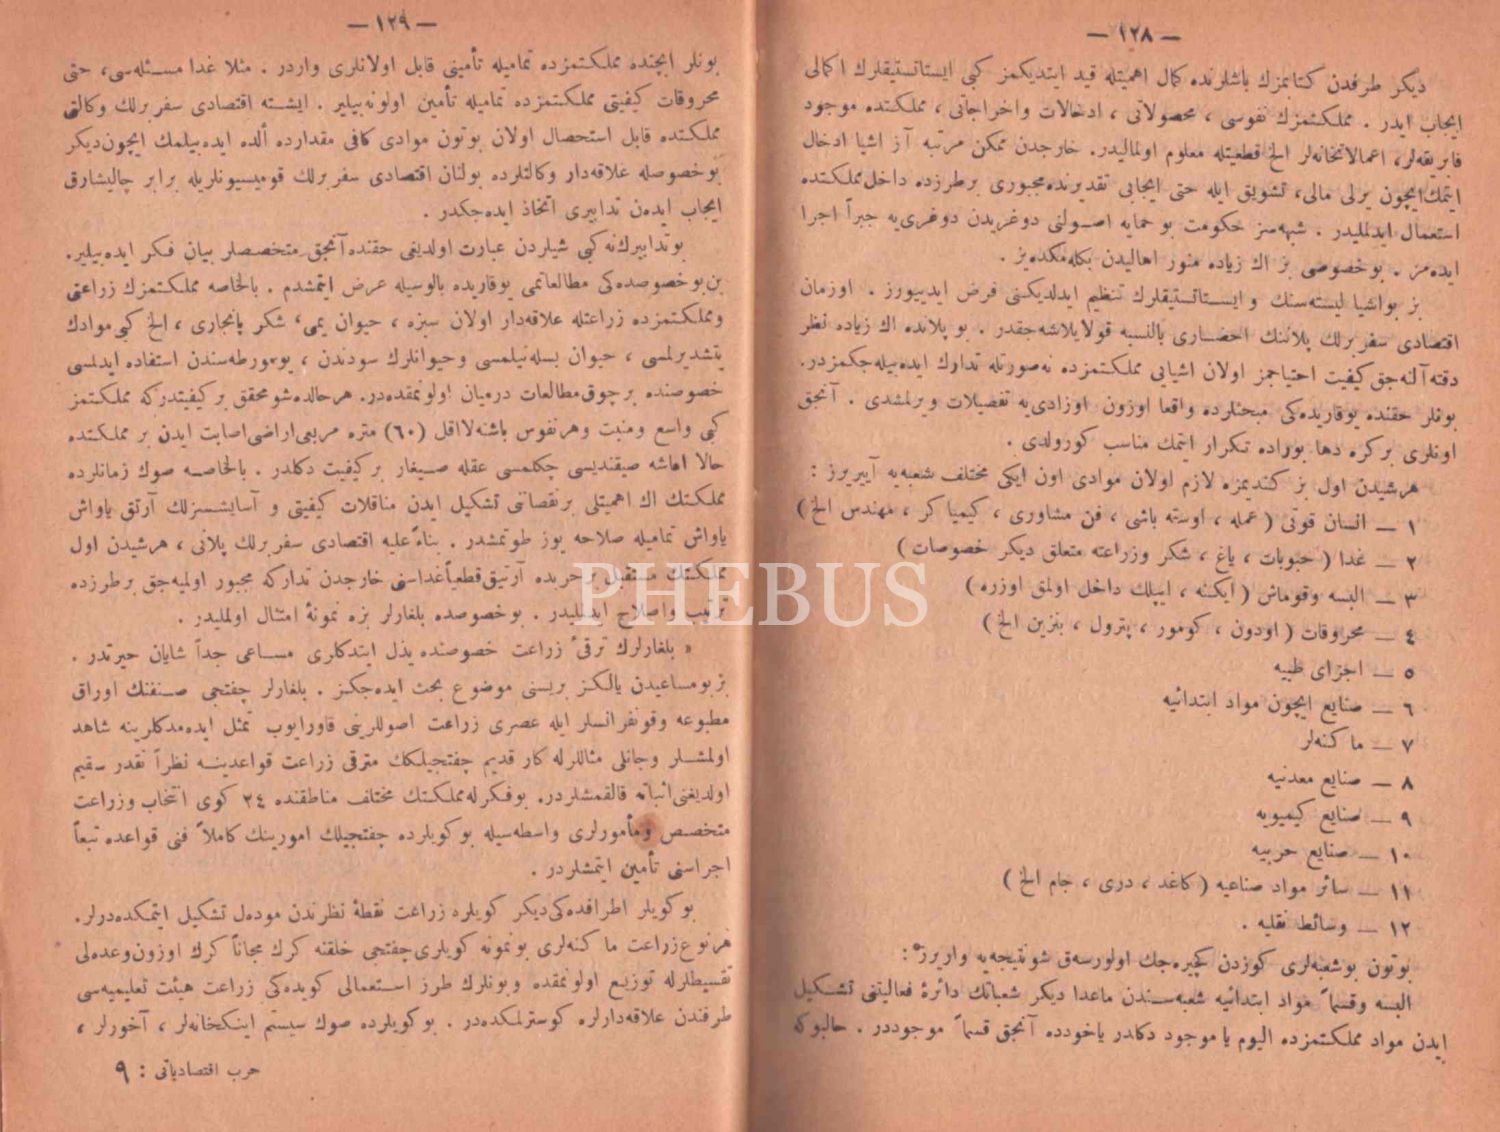 — ١٢٨ —
ديكر طرفدن كتابمزك باشلرنده كمال اهميتله قيد ايتديكمز كبى ايستاتستيقلرك اكمالى
ايجاب ايدر . مملكتمزك نفوسى ، محصولاتى ، ادخالات واخراجاتى ، مملكتده موجود
فابريقه‌لر، اعمالاتخانه‌لر الخ قطعيتله معلوم اولماليدر. خارجدن ممكن مرتبه آز اشيا ادخال
ايتمك ايچون يرلى مالى، تشويق ايله حتى ايجابى تقديرنده مجبورى برطرزده داخل مملكتده
استعمال ايدلمليدر . شبهه‌سز حكومت بو حمايه اصولنى دوغريدن دوغرى‌يه جبراً اجرا
ايده‌مز . بوخصوصى بز اك زياده منور اهاليدن بكله‌مكده‌يز .
بز بواشيا ليسته‌سنك و ايستاتستيقلرك تنظيم ايدلديكنى فرض ايدييورز . اوزمان
اقتصادى سفر برلك پلاننك احضارى بالنسبه قولايلاشه‌جقدر . بو پلانده اك زياده نظر
دقته آلنه‌جق كيفيت احتياجمز اولان اشيايى مملكتمزده نه‌صورتله تدارك ايده‌بيله‌جكمزدر.
بونلر حقنده يوقاريده‌كى مبحثلرده واقعا اوزون اوزادى‌يه تفصيلات ويرلمشدى . آنجق
اونلرى بركره دها بوراده تكرار ايتمك مناسب كورولدى .
هرشيدن اول بز كنديمزه لازم اولان موادى اون ايكى مختلف شعبه‌يه آييريرز :
١ — انسان قوتى ( عمله ، اوسته باشى ، فن مشاورى ، كيمياكر ، مهندس الخ )
٢ — غدا ( حبوبات ، ياغ ، شكر وزراعته متعلق ديكر خصوصات )
٣ — البسه وقوماش ( ايكنه ، ايپلك داخل اولمق اوزره )
٤ — محروقات ( اودون ، كومور ، پترول ، بنزين الخ )
٥ — اجزاى طبيه
٦ — صنايع ايچون مواد ابتدائيه
٧ — ماكنه‌لر
٨ — صنايع معدنيه
٩ — صنايع كيميويه
١٠ — صنايع حربيه
١١ — سائر مواد صناعيه ( كاغد ، درى ، جام الخ )
١٢ — وسائط نقليه .
بوتون بوشعبه‌لرى كوزدن كچيره‌جك اولورسه‌ق شونتيجه‌يه واريرز :
البسه وقسماً مواد ابتدائيه شعبه‌سندن ماعدا ديكر شعباتك دائرهٔ فعاليتنى تشكيل
ايدن مواد مملكتمزده اليوم يا موجود دكلدر ياخودده آنجق قسماً موجوددر . حالبوكه
— ١٢٩ —
بونلر ايچنده مملكتمزده تماميله تأمينى قابل اولانلرى واردر . مثلا غدا مسئله‌سى، حتى
محروقات كيفيتى مملكتمزده تماميله تأمين اولونه‌بيلير . ايشته اقتصادى سفر برلك وكالتى
مملكتده قابل استحصال اولان بوتون موادى كافى مقدارده ألده ايده‌بيلمك ايچون ديكر
بوخصوصله علاقه‌دار وكالتلرده بولنان اقتصادى سفر برلك قوميسيونلريله برابر چاليشارق
ايجاب ايده‌ن تدابيرى اتخاذ ايده‌جكدر .
بو تدابيرك نه كبى شيلردن عبارت اولديغى حقنده آنجق متخصصلر بيان فكر ايده‌بيلير.
بن بوخصوصده‌كى مطالعاتمى يوقاريده بالوسيله عرض ايتمشدم . بالخاصه مملكتمزك زراعتى
ومملكتمزده زراعتله علاقه‌دار اولان سبزه ، حيوان يمى، شكر پانجارى ، الخ كبى موادك
يتشديرلمسى ، حيوان بسله‌نيلمسى وحيوانلرك سودندن ، يومورطه‌سندن استفاده ايدلمسى
خصوصنده برچوق مطالعات درميان اولونمقده‌در. هرحالده شو محقق بر كيفيتدركه مملكتمز
كبى واسع ومنبت وهرنفوس باشنه لااقل (٦٠) متره مربعى اراضى اصابت ايدن بر مملكتده
حالا اعاشه صيقنديسى چكلمسى عقله صيغار بر كيفيت دكلدر . بالخاصه صوك زمانلرده
مملكتك اك اهميتلى بر نقصانى تشكيل ايدن مناقلات كيفيتى و آسايشسزلك آرتق ياواش
ياواش تماميله صلاحه يوز طوتمشدر . بناءً عليه اقتصادى سفر برلك پلانى ، هرشيدن اول
مملكتك مستقبل بر حربده آرتيق قطعياً غداسنى خارجدن تداركه مجبور اولميه‌جق برطرزده
ترتيب واصلاح ايدلمليدر . بوخصوصده بلغارلر بزه نمونهٔ امتثال اولمليدر .
« بلغارلرك ترقىٔ زراعت خصوصنده بذل ايتدكلرى مساعى جداً شايان حيرتدر .
بز بو مساعيدن يالكز بريسنى موضوع بحث ايده‌جكز . بلغارلر چفتجى صنفنك اوراق
مطبوعه وقونفرانسلر ايله عصرى زراعت اصوللرينى قاورايوب تمثل ايده‌مدكلرينه شاهد
اولمشلر وجانلى مثاللرله كار قديم چفتجيلكك مترقى زراعت قواعدينه نظراً نقدر سقيم
اولديغنى اثباته قالقمشلردر. بوفكرله مملكتك مختلف مناطقنده ٢٤ كوى انتخاب وزراعت
متخصص ومأمورلرى واسطه‌سيله بو كويلرده چفتجيلك امورينك كاملاً فنى قواعده تبعاً
اجراسنى تأمين ايتمشلردر .
بو كويلر اطرافده‌كى ديكر كويلره زراعت نقطهٔ نظرندن مودل تشكيل ايتمكده‌درلر.
هرنوع زراعت ماكنه‌لرى بونمونه كويلرى چفتجى خلقنه كرك مجاناً كرك اوزون وعده‌لى
تقسيطلرله توزيع اولونمقده وبونلرك طرز استعمالى كويده‌كى زراعت هيئت تعليميه‌سى
طرفندن علاقه‌دارلره كوسترلمكده‌در . بو كويلرده صوك سيستم اينكخانه‌لر ، آخورلر ،
حرب اقتصادياتى : ٩
PHEBUS